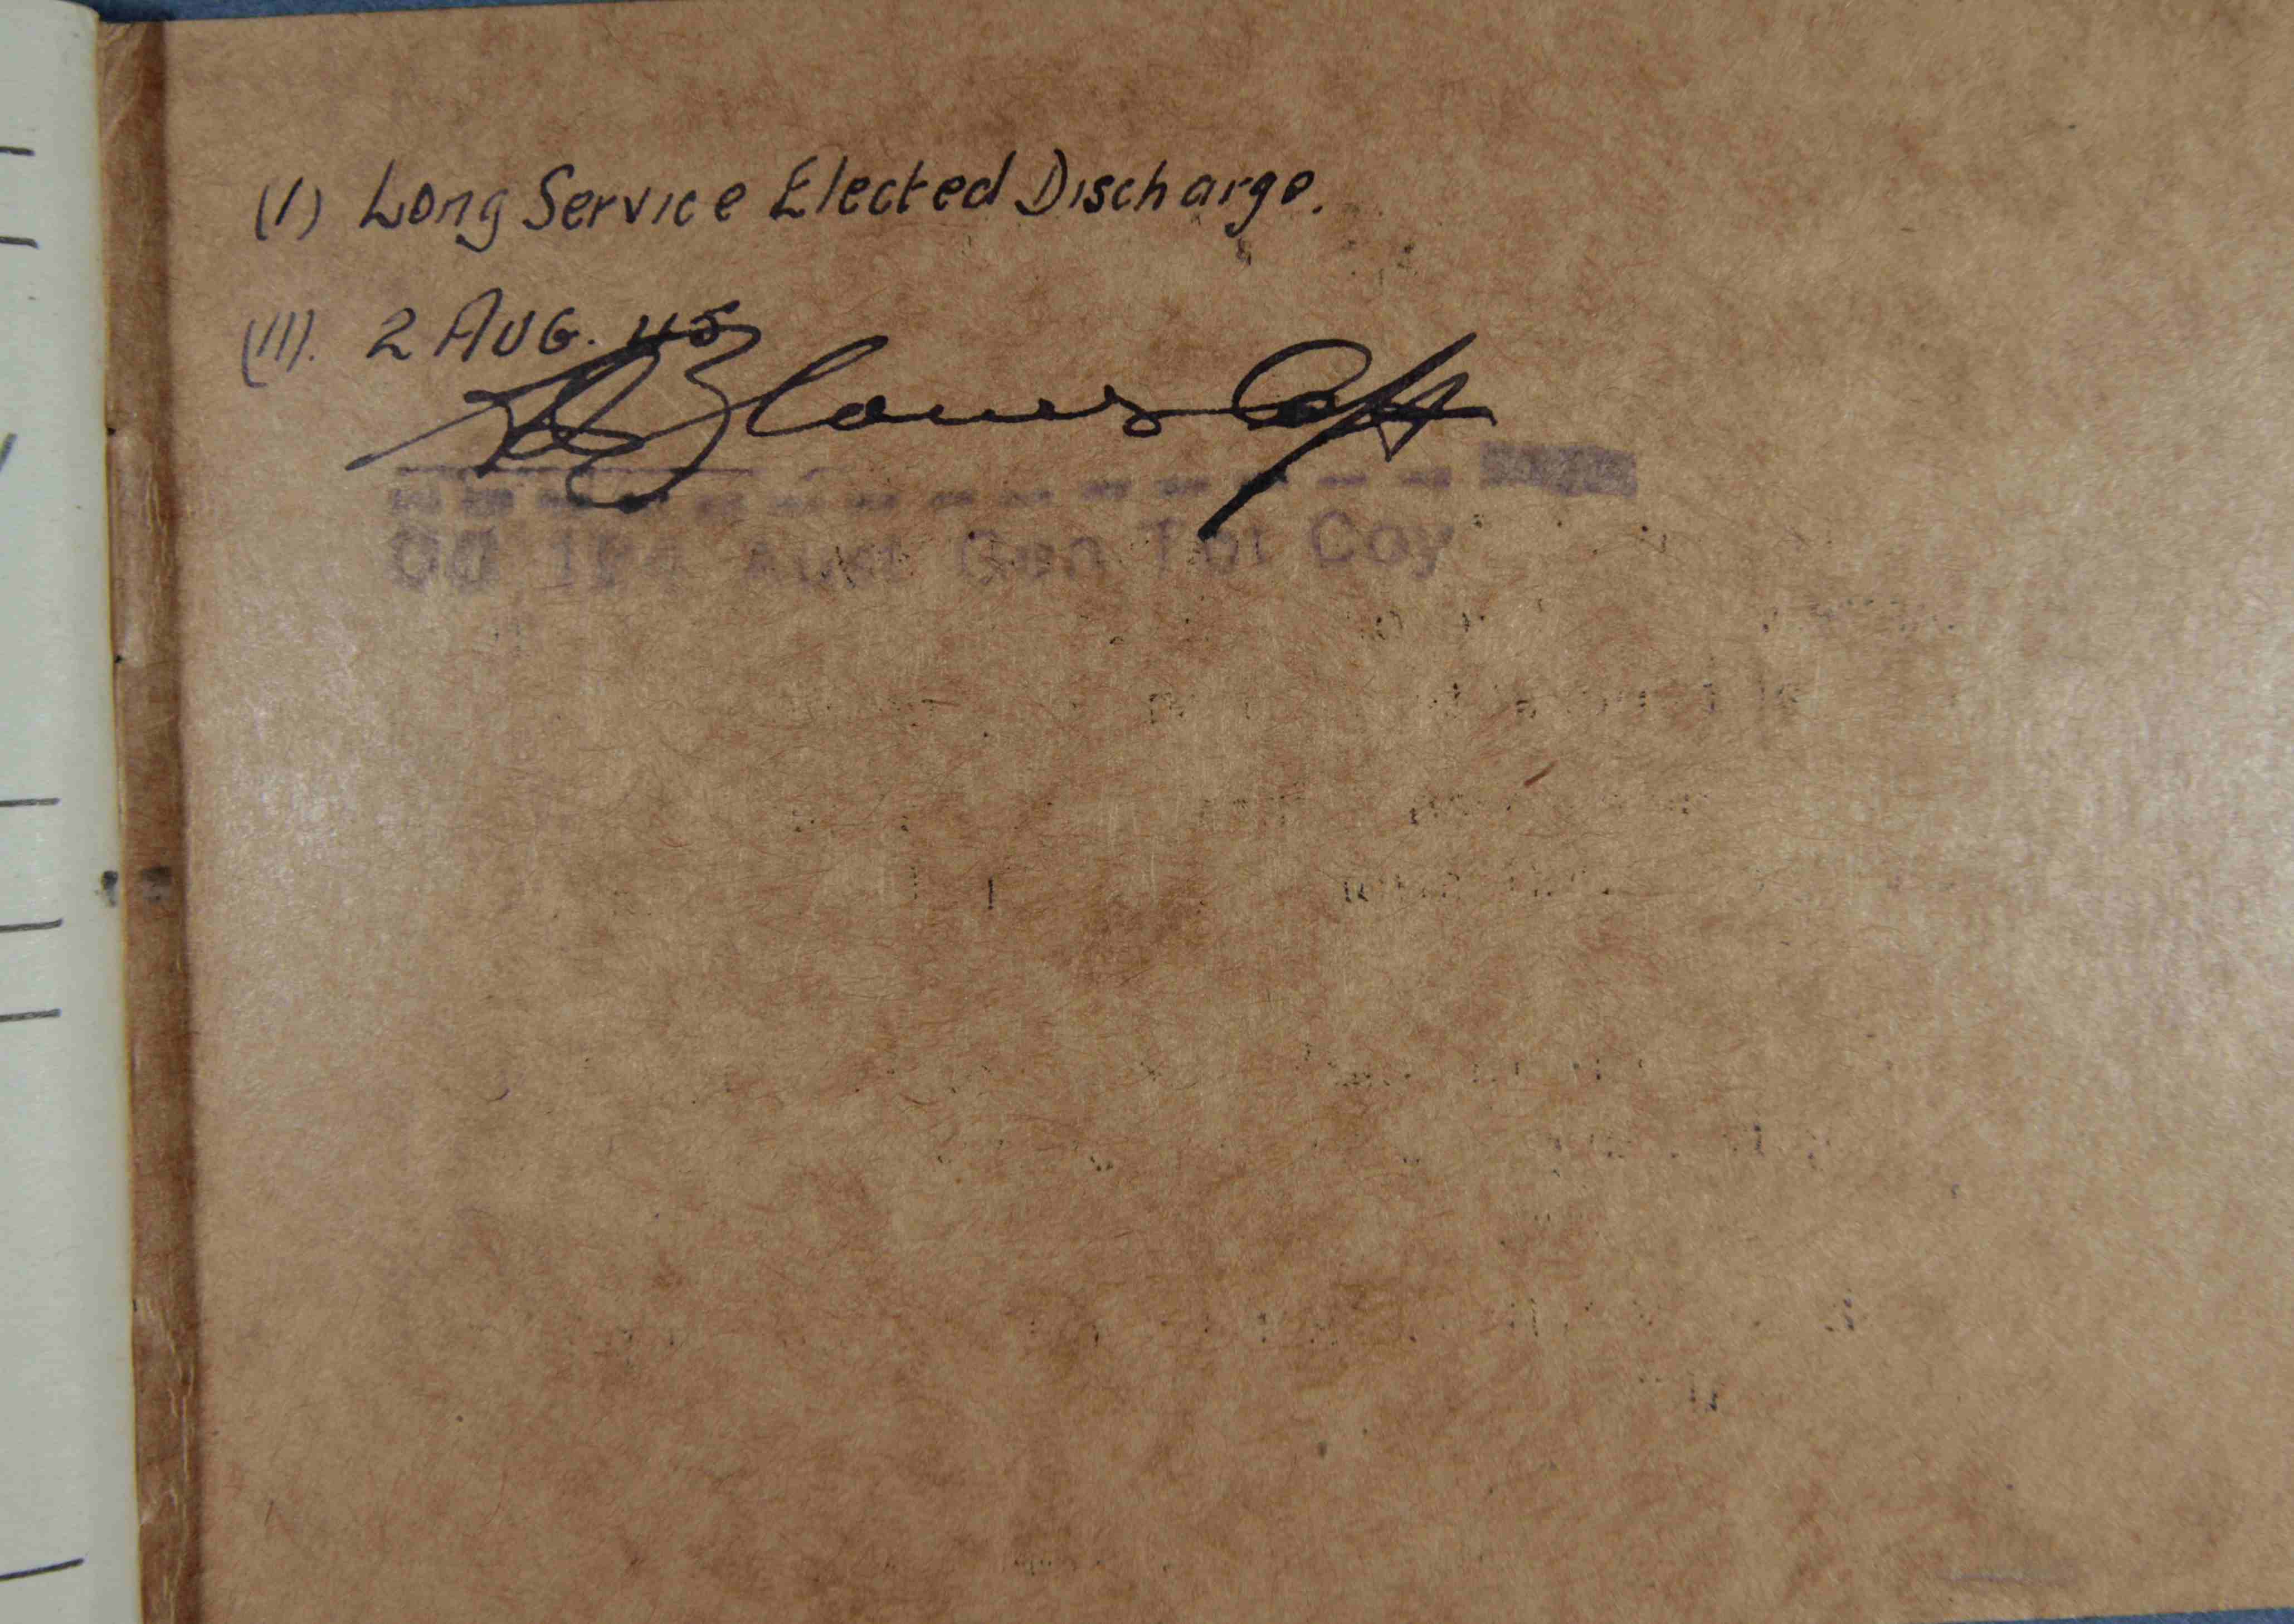 (I) Long Service Elected Discharge.
(II). 2 AUG. 45
Capt
Aust Gen Tpt Coy